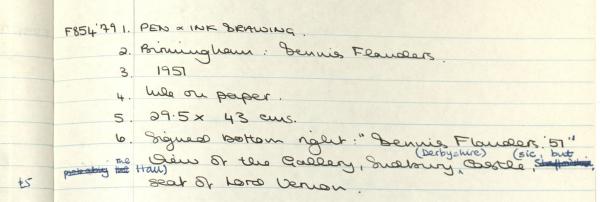 F854'79 1. PEN & INK DRAWING.
2. Birmingham : Dennis Flanders.
3. 1951
4. Ink on paper.
5. 29.5 x 43 cms.
6. Signed bottom right : "Dennis Flanders '51"
(Derbyshire) (sic, but
View of the Gallery, Sudbury, Castle, Staffordshire,
probably the Hall)
seat of Lord Vernon.
t5